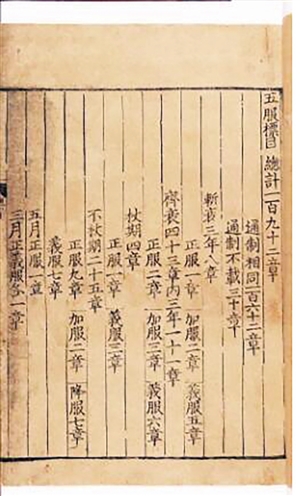 五服標目 總計一百九十二章
通制相同一百六十二章
通制不載三十章
斬衰三年八章
正服一章 加服二章 義服五章
齊衰四十三章內三年一十一章
正服二章 加服三章 義服六章
杖期四章
正服一章 義服三章
不杖期二十五章
正服九章 加服二章 降服七章
義服七章
五月正服一章
三月正義服各一章